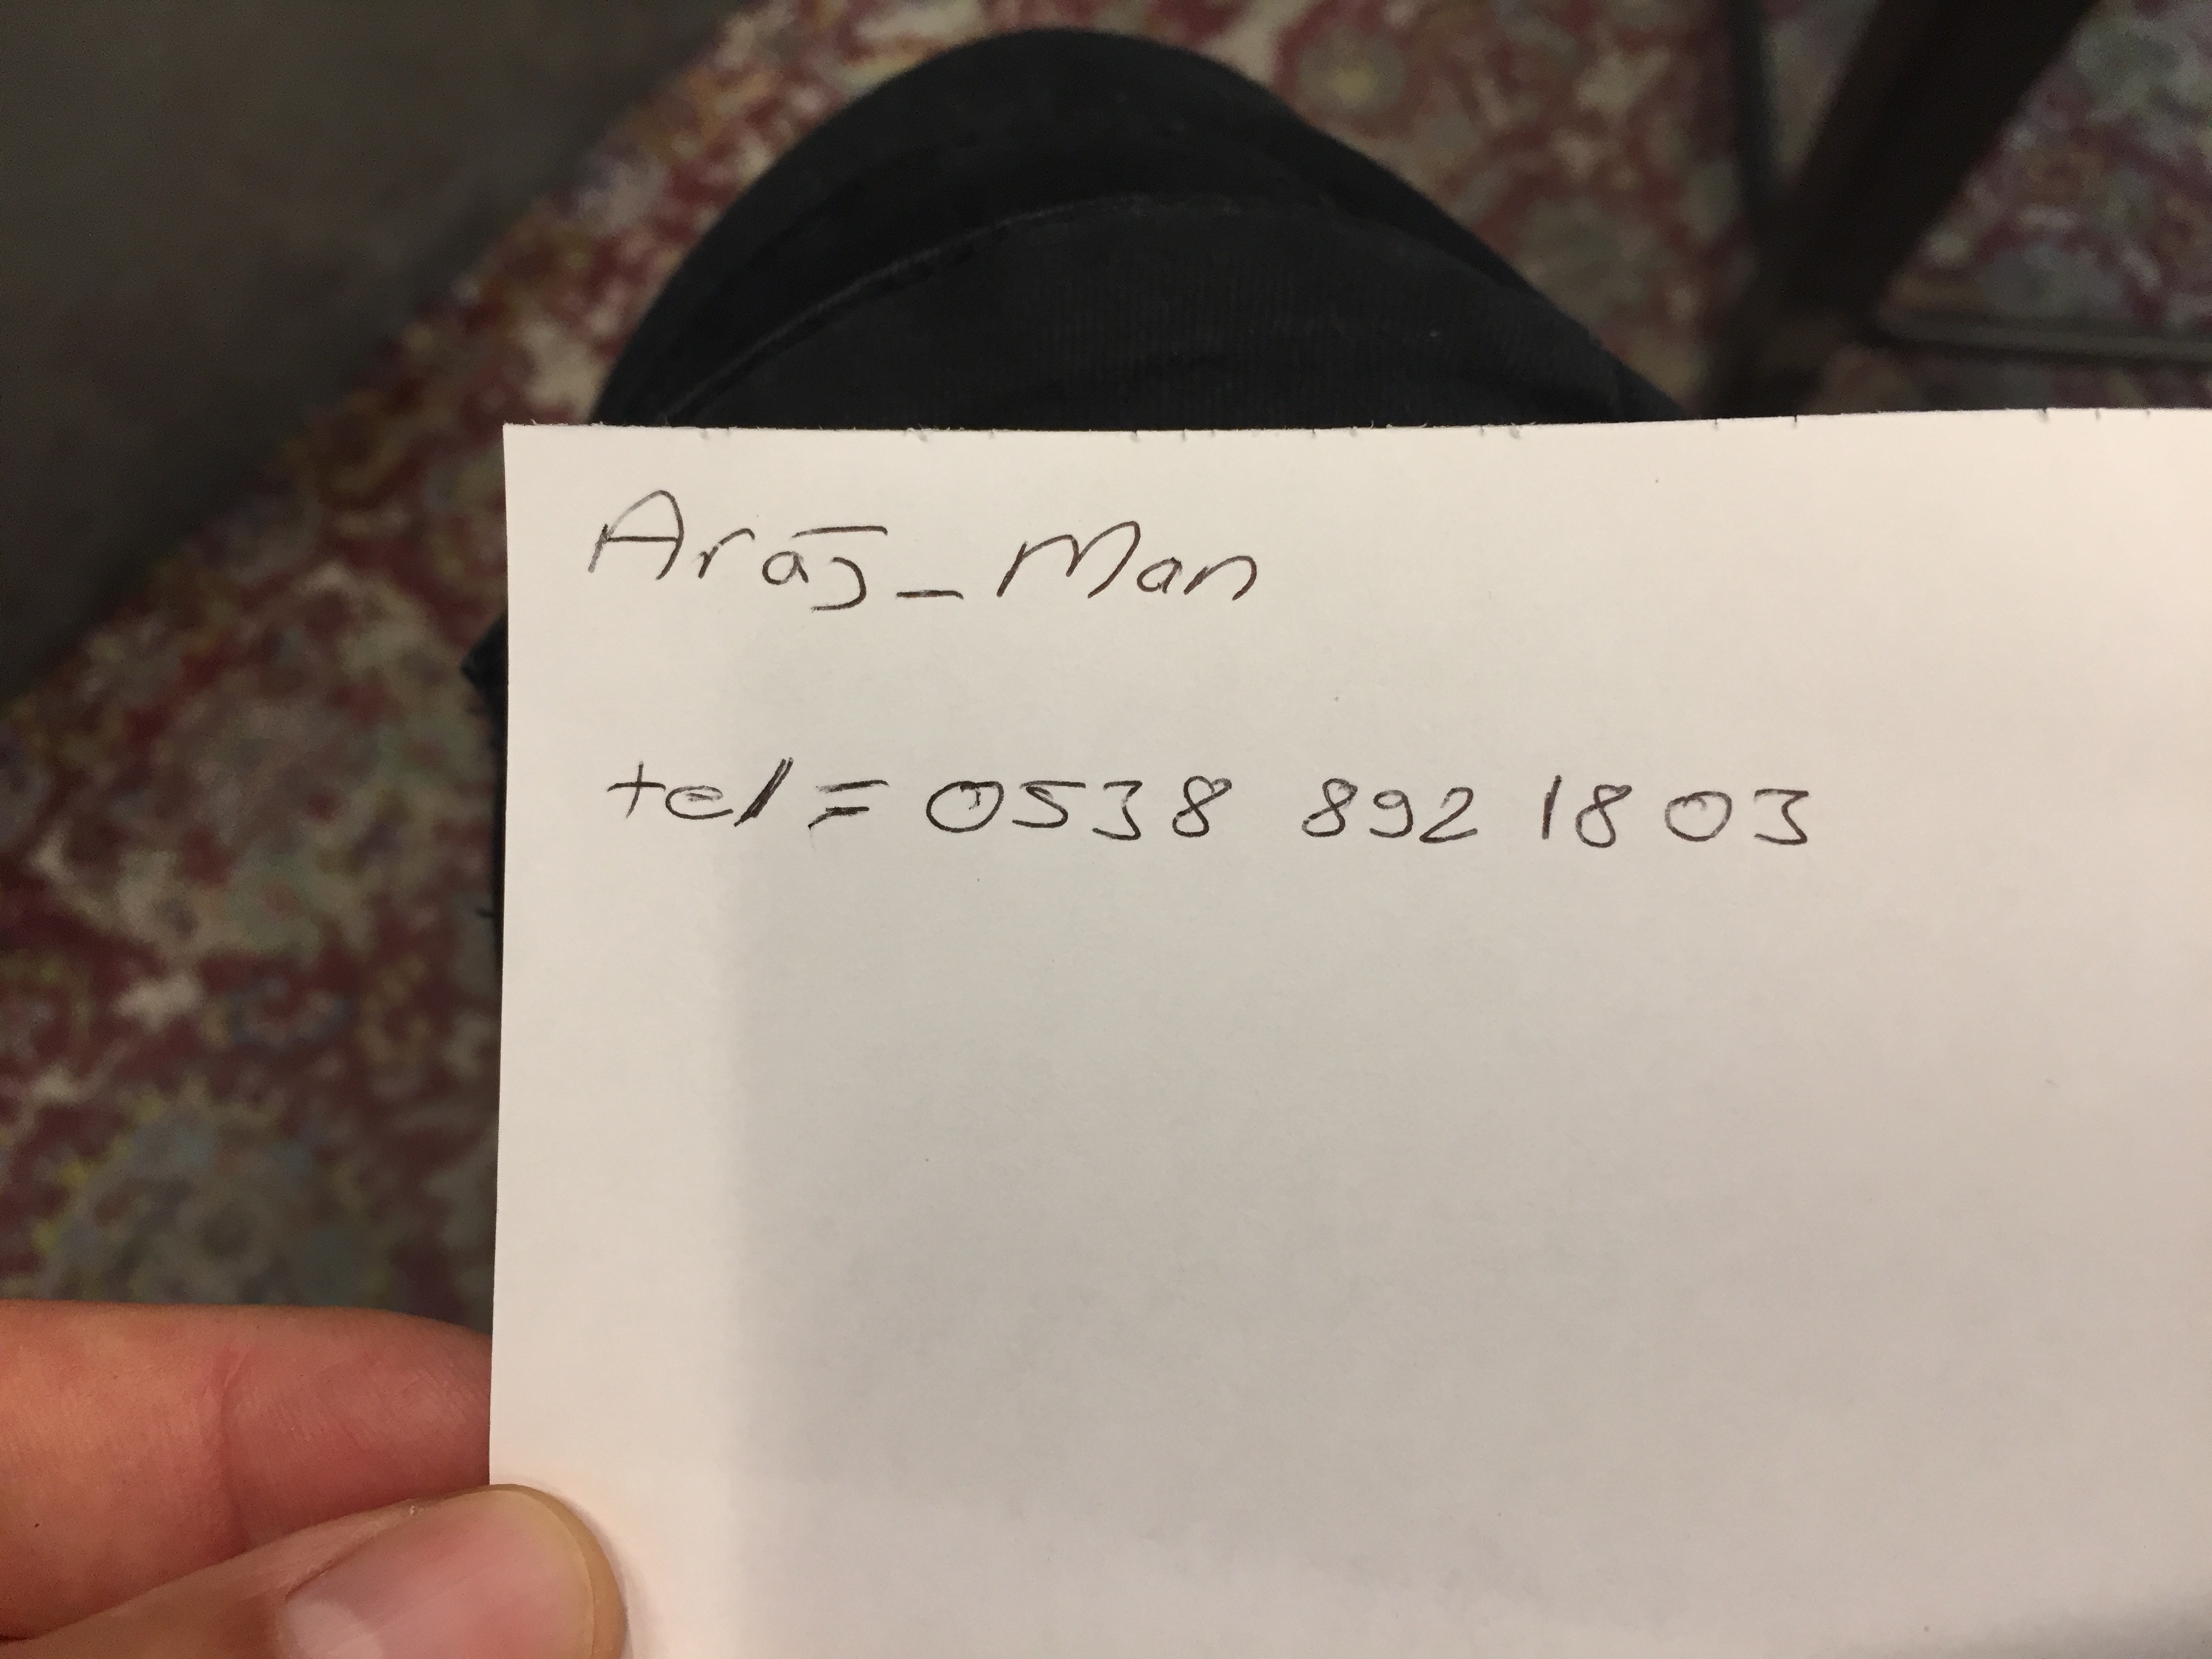 Araz - Man
tel = 0538 892 18 03